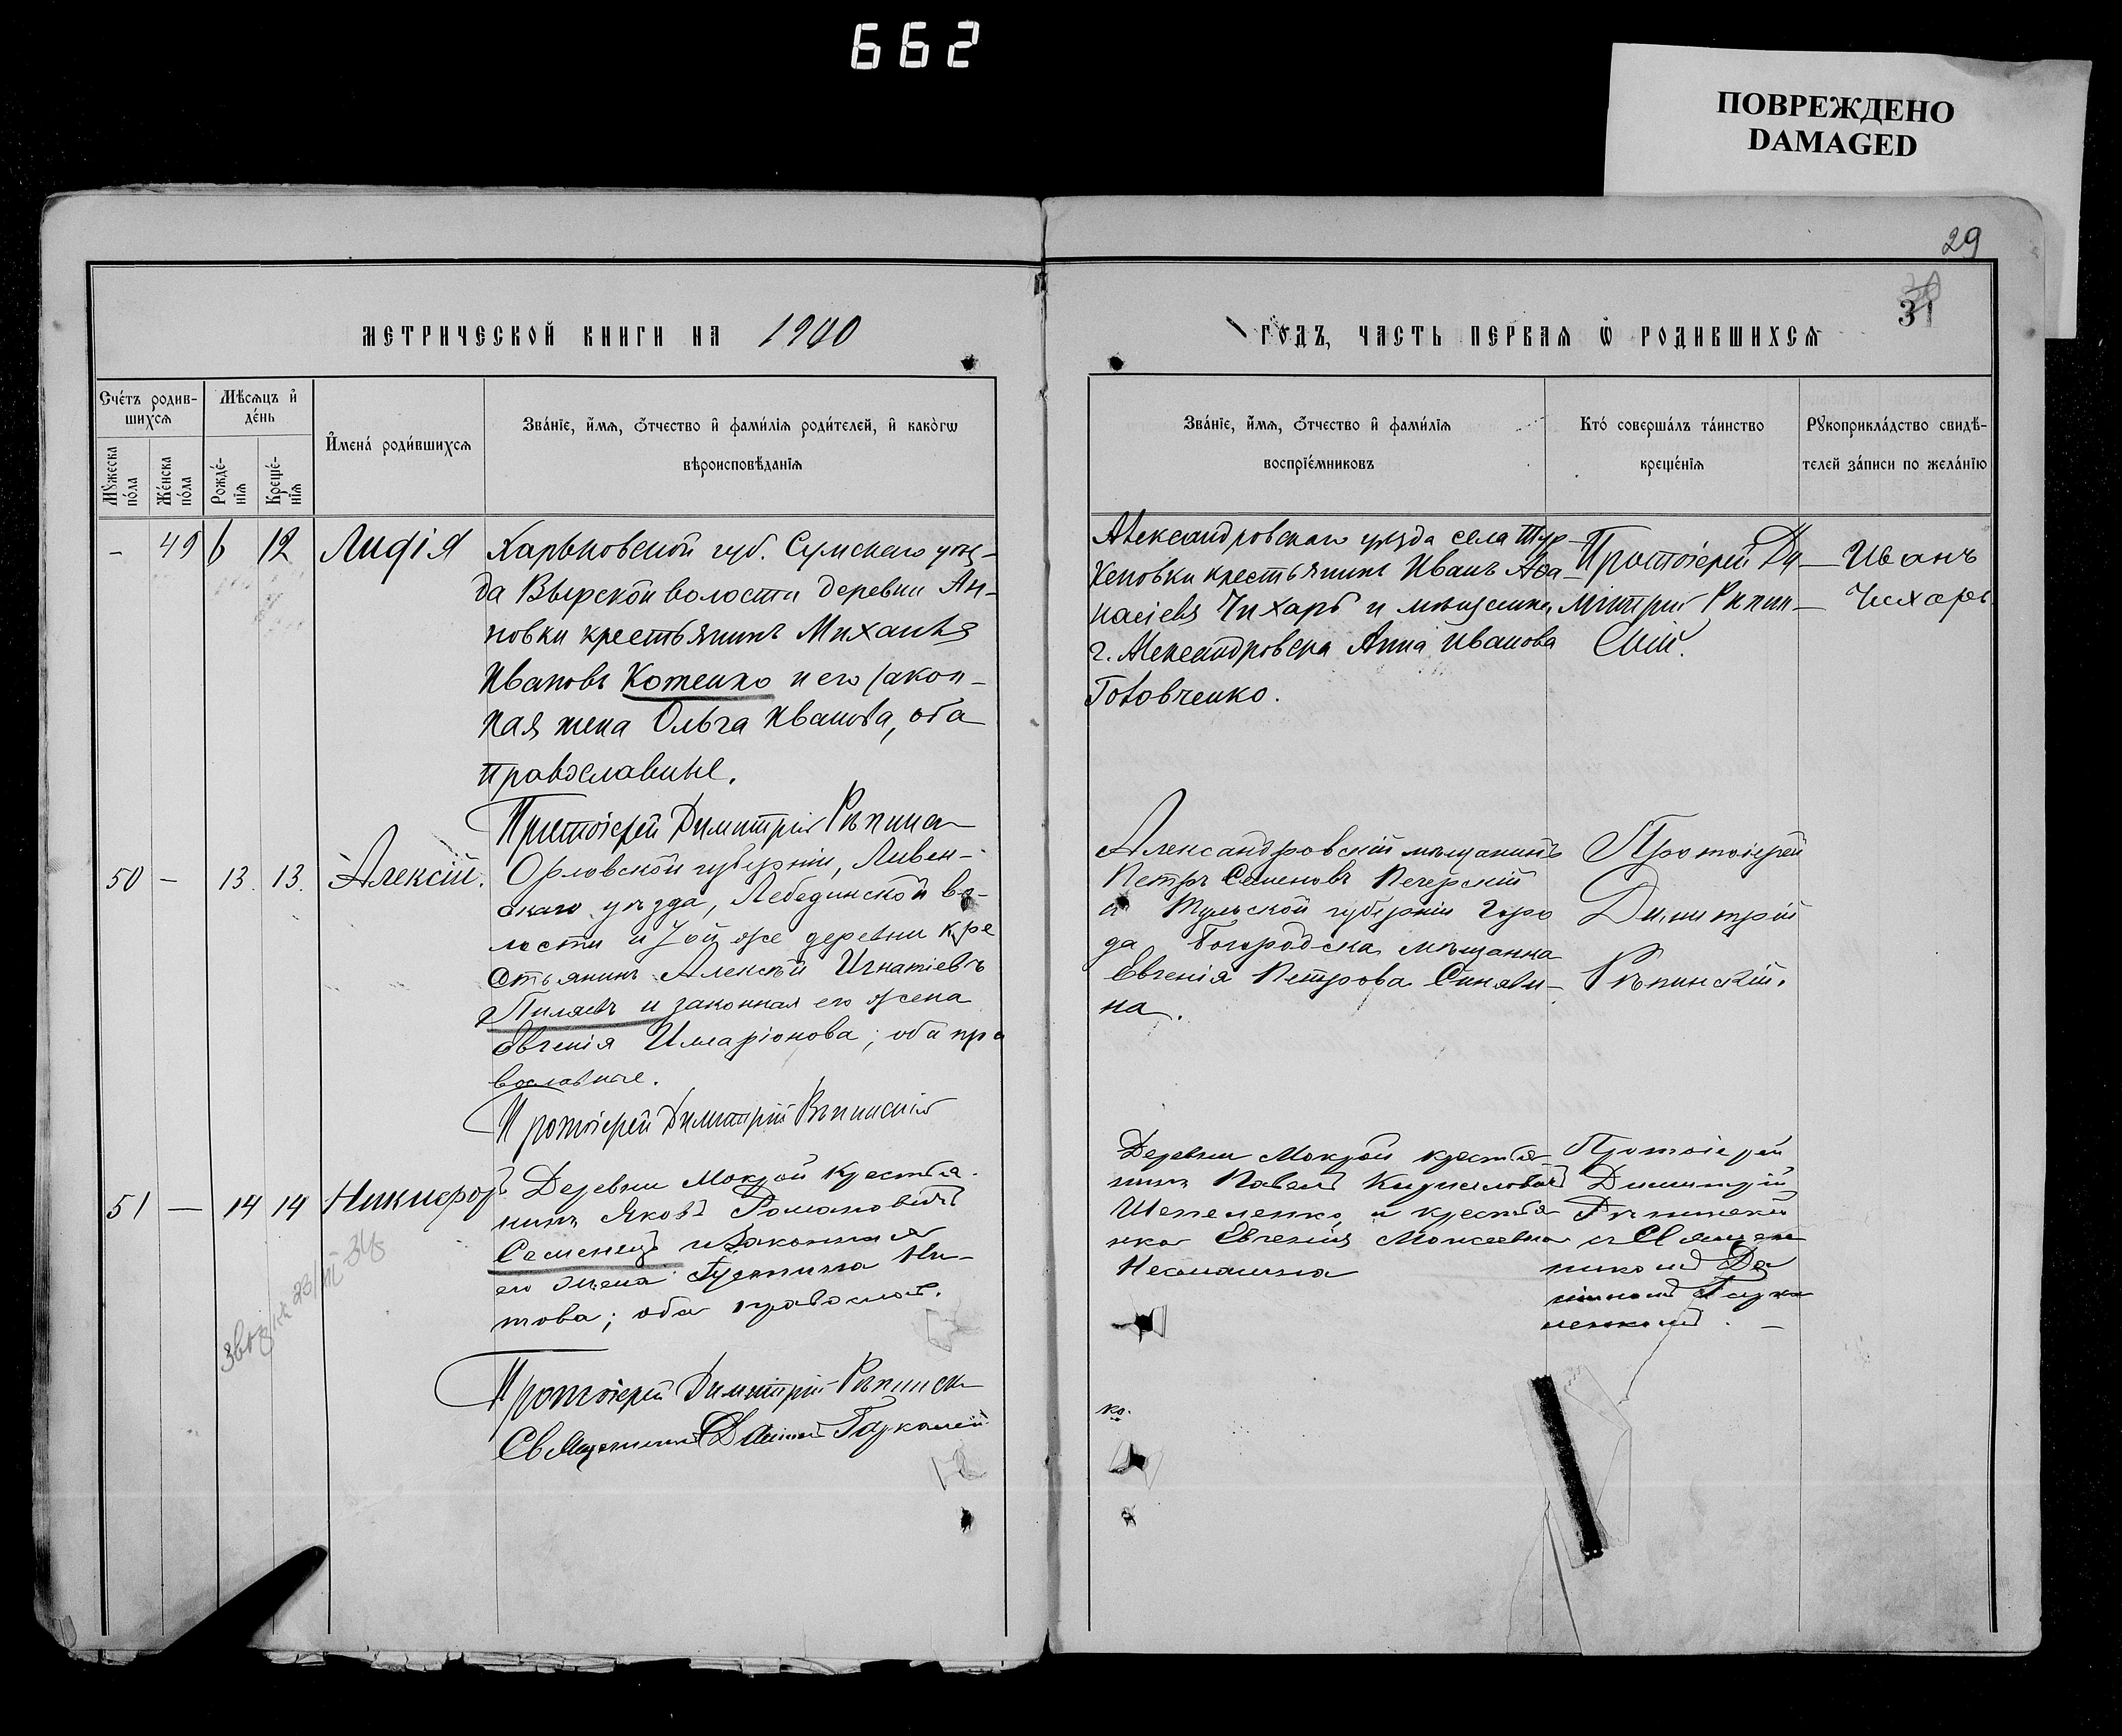 662
ПОВРЕЖДЕНО
DAMAGED
29
31
МЕТРИЧЕСКОЙ КНИГИ НА 1900
ГОДЪ, ЧАСТЬ ПЕРВАЯ Ѿ РОДИВШИХСѦ
Счéтъ родив-
шихсѧ
Мѣсѧцъ и҆
дéнь
Мꙋ́жеска
пóла
Жéнска
пóла
Рождé-
нїѧ
Крещé-
нїѧ
И҆менá роди́вшихсѧ
Звáнїе, и҆́мѧ, ѻ҆́тчество и҆ фами́лїѧ роди́телей, и҆ какóгѡ
вѣроисповѣ́данїѧ
Звáнїе, и҆́мѧ, ѻ҆́тчество и҆ фами́лїѧ
воспрїéмниковъ
Ктó совершáлъ тáинство
крещéнїѧ
Рꙋкоприклáдство свидѣ́-
телей зáписи по желáнїю
- 49 6 12 Лидія
Харьковской губ. Сумскаго уѣз-
да Вырской волости деревни Ан-
новки крестьянинъ Михаилъ
Ивановъ Котенко и его закон-
ная жена Ольга Иванова, оба
православные.
Протоіерей Димитрій Рѣпинс
Александровскаго уѣзда села Тур-
кеновки крестьянинъ Иванъ Аѳа-
насіевъ Чихарь и мѣщанка
г. Александровска Анна Иванова
Головченко.
Протоіерей Ди-
митрій Рѣпин-
скій.
Иванъ
Чихарь
50 - 13. 13. Алексій.
Орловской губерніи, Ливен-
скаго уѣзда, Лебединской во-
лости и той же деревни кре
стьянинъ Алексѣй Игнатіевъ
Пиляевъ и законная его жена
Евгенія Илларіонова; оба пра
вославные.
Протоіерей Димитрій Рѣпинскій
Александровскій мѣщанинъ
Петръ Семеновъ Печерскій
и Тульской губерніи горо
да Богородска мѣщанка
Евгенія Петрова Синяви-
на.
Протоіерей
Димитрій
Рѣпинскій.
51 - 14 14 Никифоръ
Деревни Мокрой крестья-
нинъ Яковъ Романовичъ
Семенецъ и законная
его жена Ни-
това; оба православ.
Протоіерей Димитрій Рѣпинск
Священникъ
Деревни Мокрой крестья-
нинъ Павелъ Кирилловичъ
Шепеленко и крестья
нка Евгенія Моисеевна
Протоіерей
Димитрій
Рѣпинскій
и Священ
никомъ
ко.